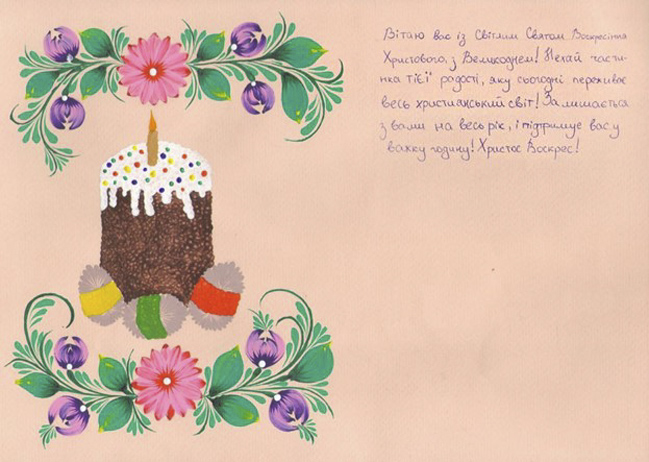 Вітаю вас із Світлим Святом Воскресіння
Христового, з Великоднем! Нехай части-
нка тієї радості, яку сьогодні переживає
весь християнський світ! Залишається
з вами на весь рік, і підтримує вас у
важку годину! Христос Воскрес!